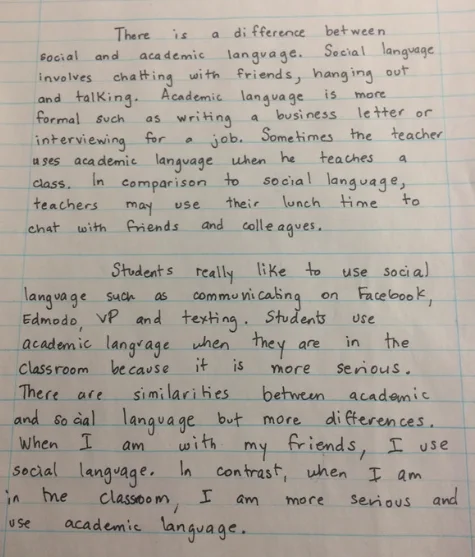 There is a difference between
social and academic language. Social language
involves chatting with friends, hanging out
and talking. Academic language is more
formal such as writing a business letter or
interviewing for a job. Sometimes the teacher
uses academic language when he teaches a
class. In comparison to social language,
teachers may use their lunch time to
chat with friends and colleagues.
Students really like to use social
language such as communicating on Facebook,
Edmodo, VP and texting. Students use
academic language when they are in the
classroom because it is more serious.
There are similarities between academic
and social language but more differences.
When I am with my friends, I use
social language. In contrast, when I am
in the classroom, I am more serious and
use academic language.